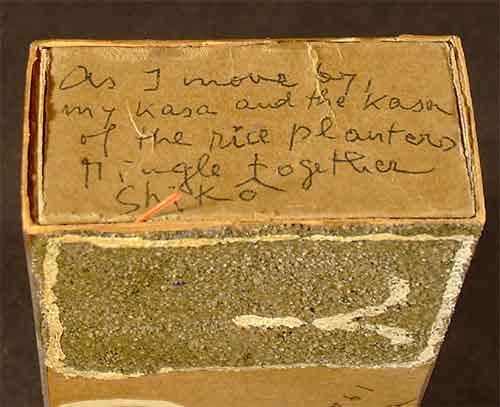 As I move by,
my kasa and the kasa
of the rice planters
Mingle together
Shiko